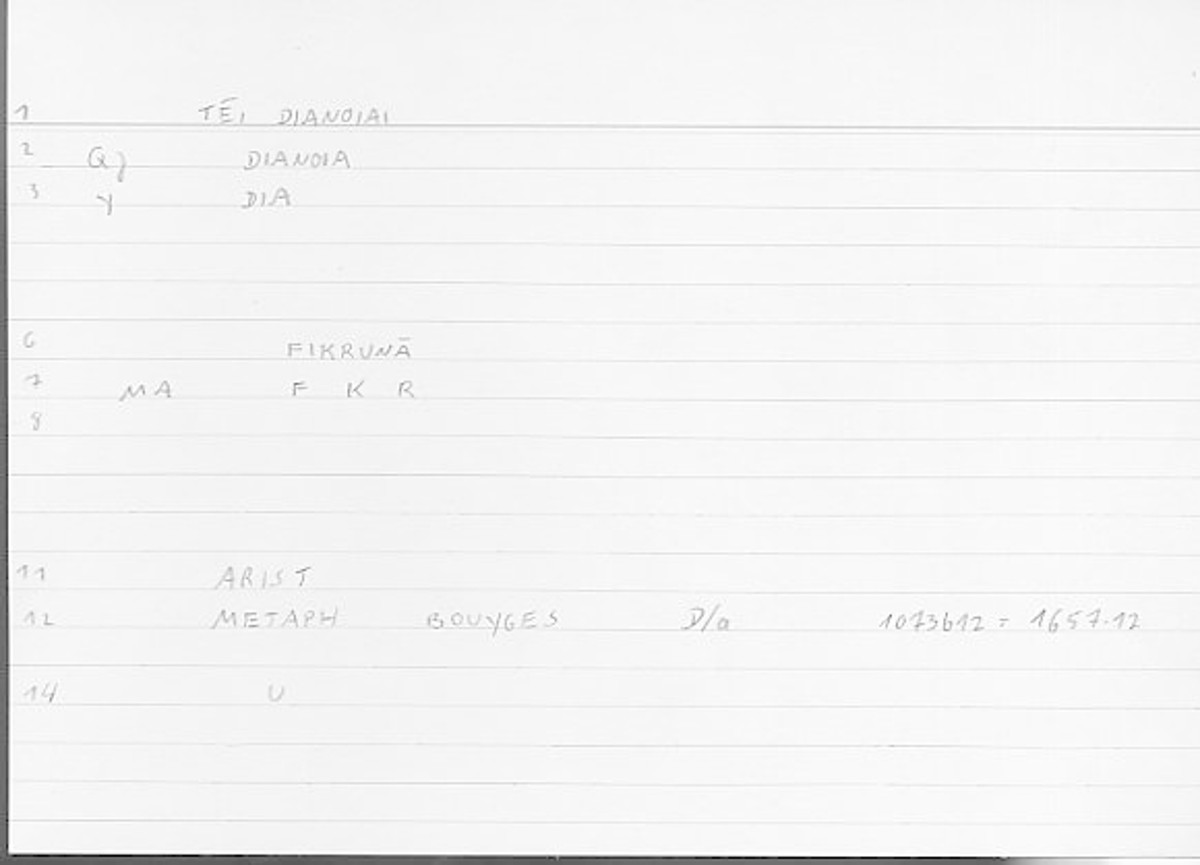 1 TĒI DIANOIAI
2 Qj DIANOIA
3 y DIA
6 FIKRUNĀ
7 MA F K R
8
11 ARIST
12 METAPH BOUYGES D/a 1073b12 = 1657.12
14 U